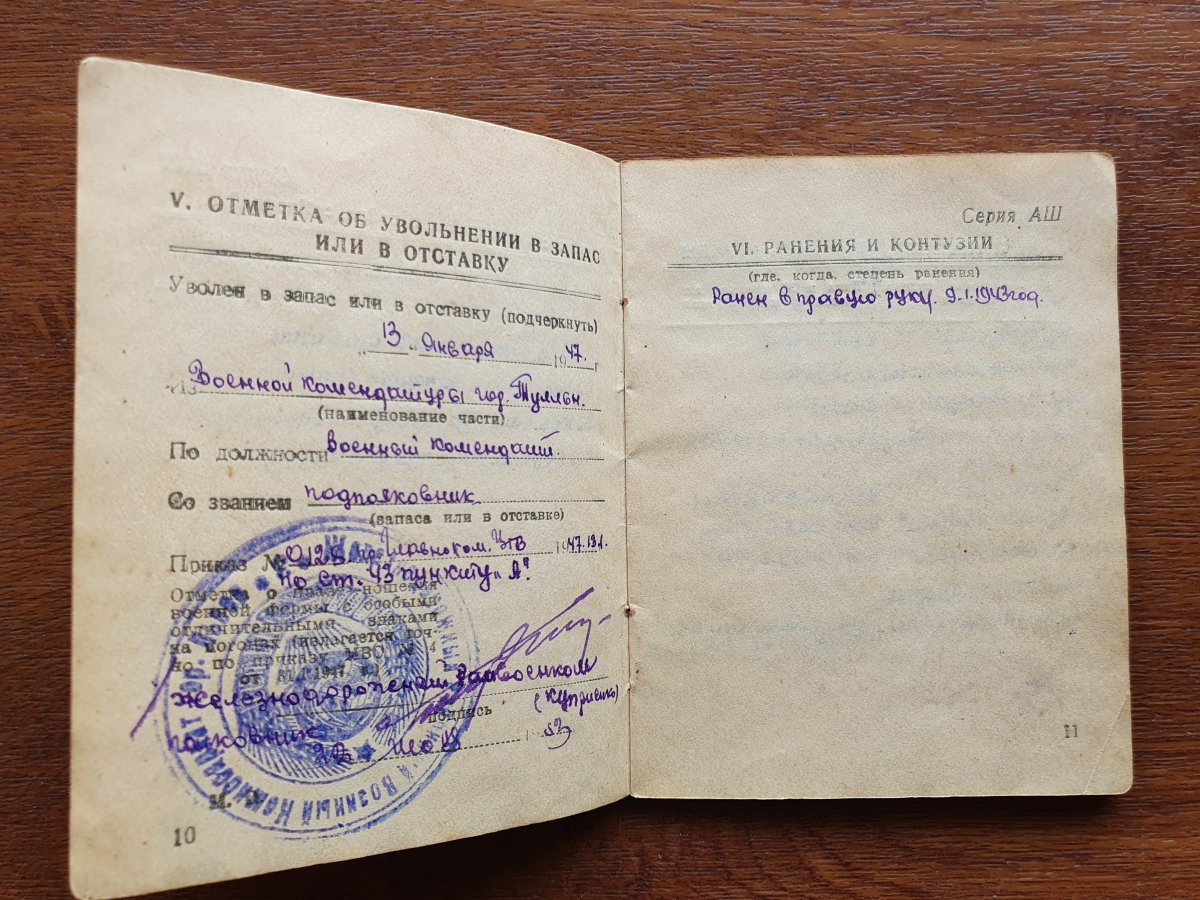 V. ОТМЕТКА ОБ УВОЛЬНЕНИИ В ЗАПАС
ИЛИ В ОТСТАВКУ
Уволен в запас или в отставку (подчеркнуть)
„13" Января 1947. г
Из Военной комендатуры гор. Тулльн.
(наименование части)
По должности военный комендант.
Со званием подполковник
(запаса или в отставке)
Приказ № 0128 Главноком. ЦГВ 1947.13.1.
по ст. 43 пункту „А".
Отметка о праве ношения
военной формы с особыми
отличительными знаками
на погонах (излагается точ-
но, по приказу МВО № 4
от 31.I 1947 г.)
железнодорожный райвоенком
подпись
(Куприенко)
полковник
22 53
М.
10
Серия АШ
VI. РАНЕНИЯ И КОНТУЗИИ
(где, когда, степень ранения)
Ранен в правую руку. 9.1.1943 год.
11